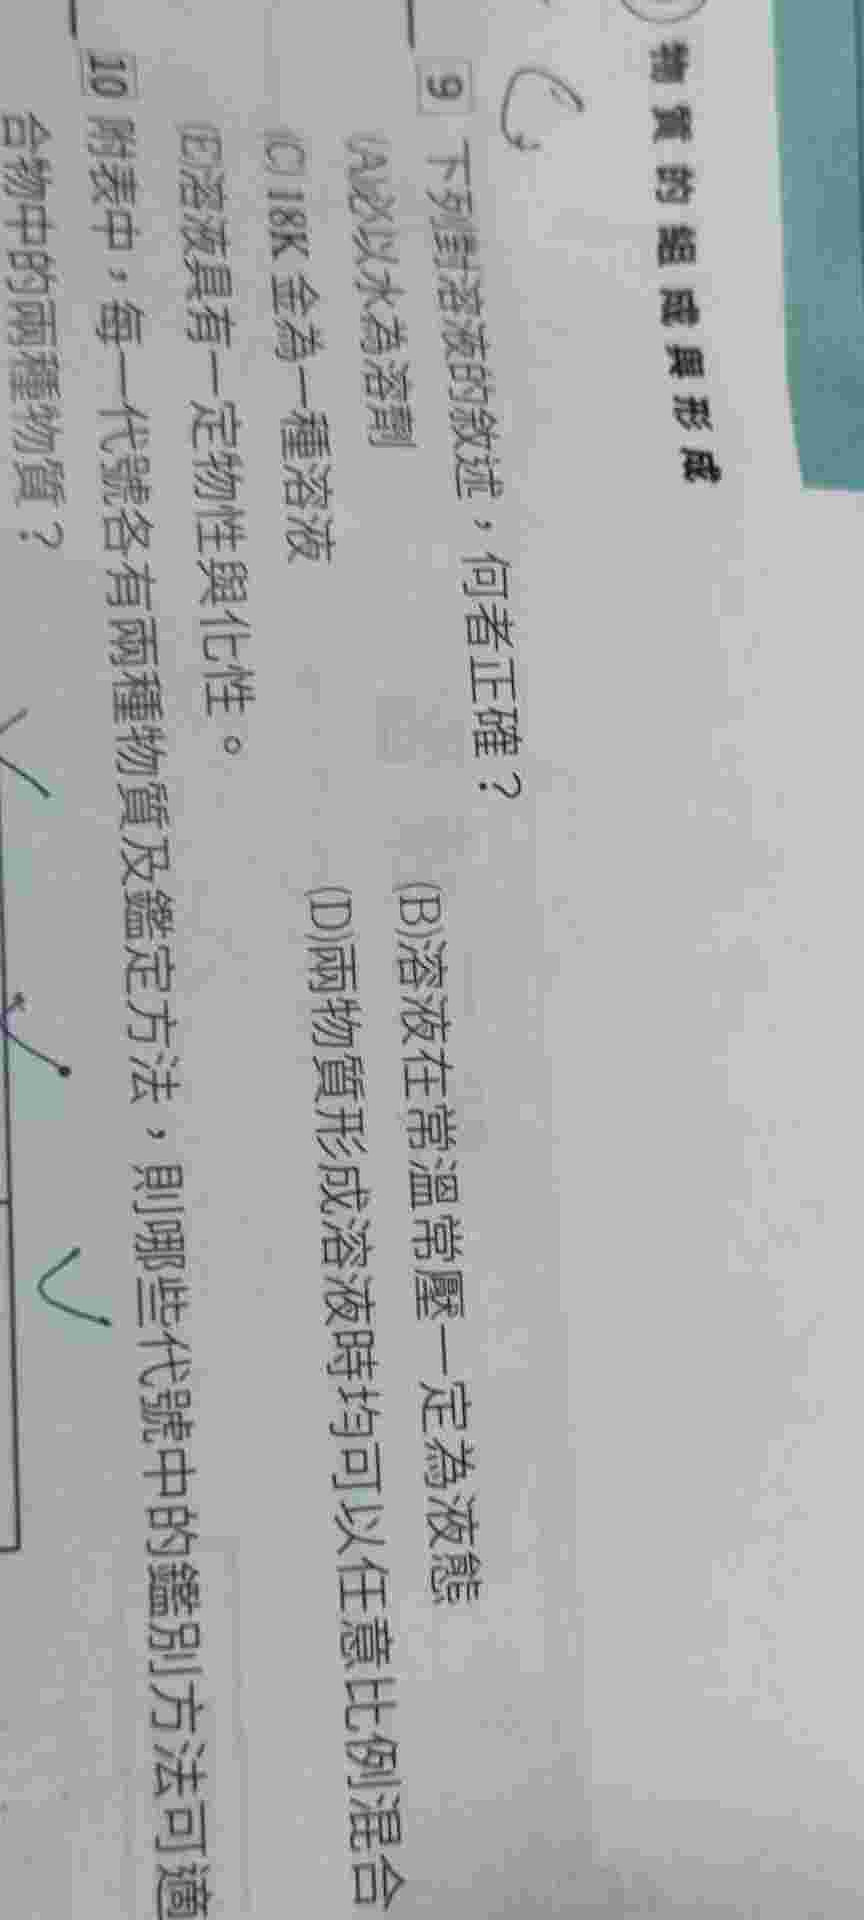 物質的組成與形成
9 下列對溶液的敘述，何者正確？
(A)必以水為溶劑 (B)溶液在常溫常壓一定為液態
(C) 18K 金為一種溶液 (D)兩物質形成溶液時均可以任意比例混合
(E)溶液具有一定物性與化性。
10 附表中，每一代號各有兩種物質及鑑定方法，則哪些代號中的鑑別方法可適
合物中的兩種物質？